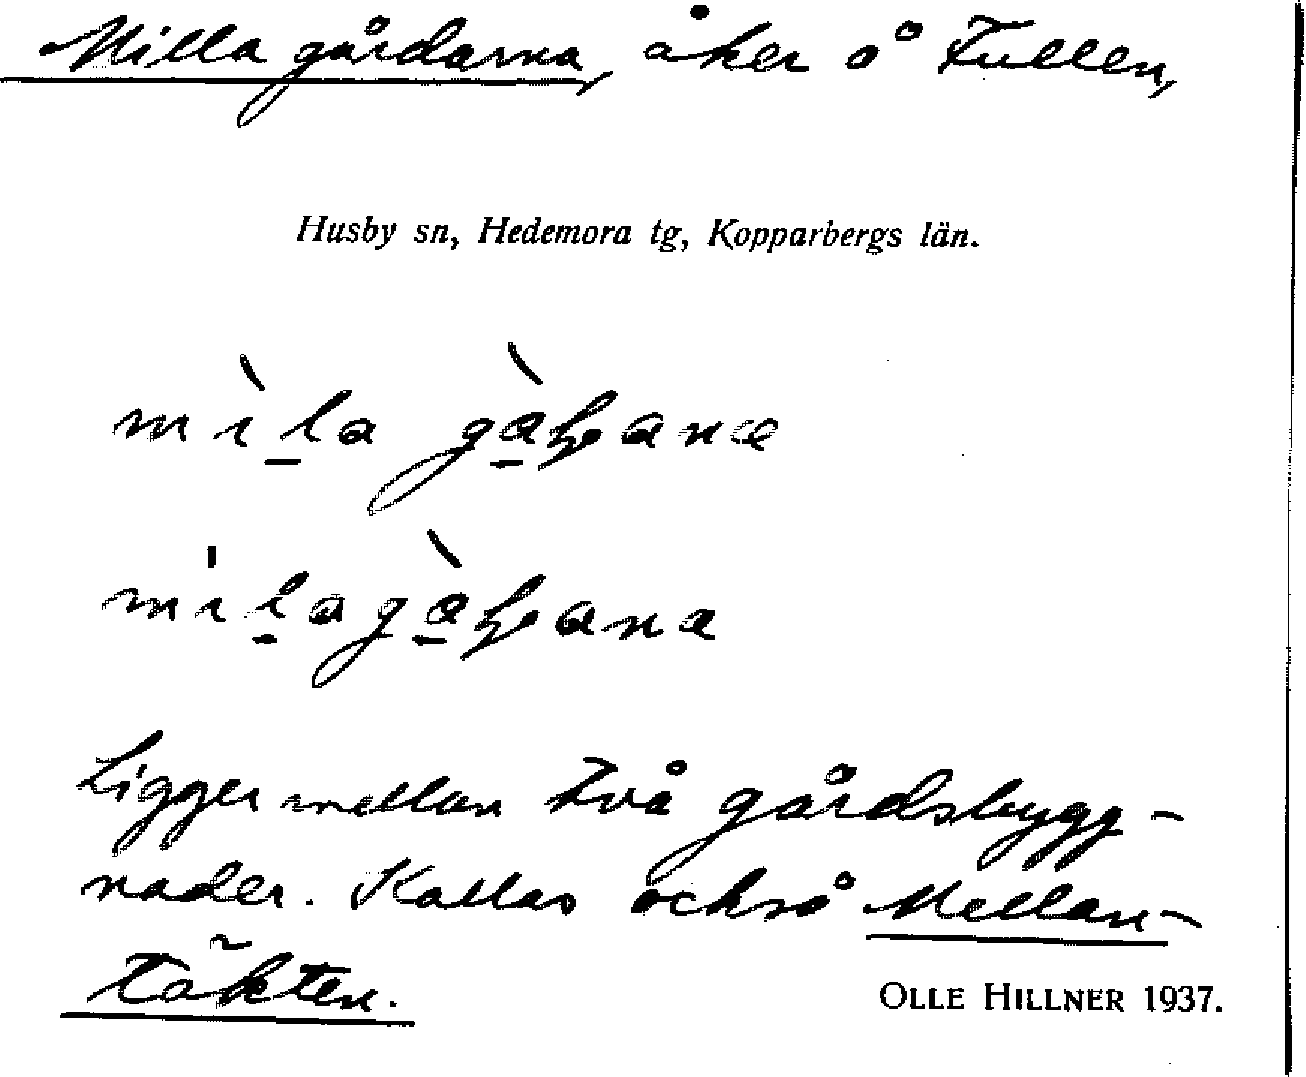 Milla gårdarna, åker å Tullen,
Husby sn, Hedemora tg, Kopparbergs län.
Ligger mellan två gårdsbygg-
nader. Kallas också Mellan-
täkten.
OLLE HILLNER 1937.